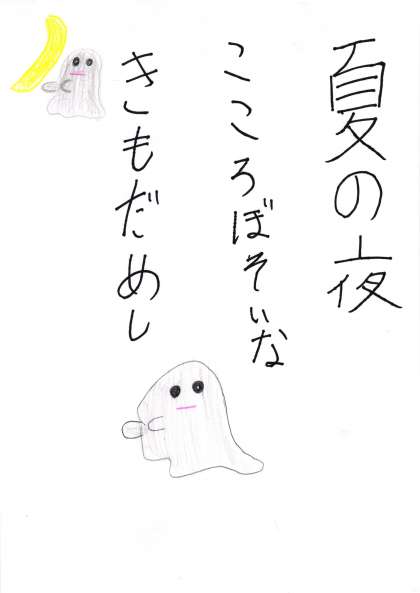 夏の夜
こころぼそいな
きもだめし